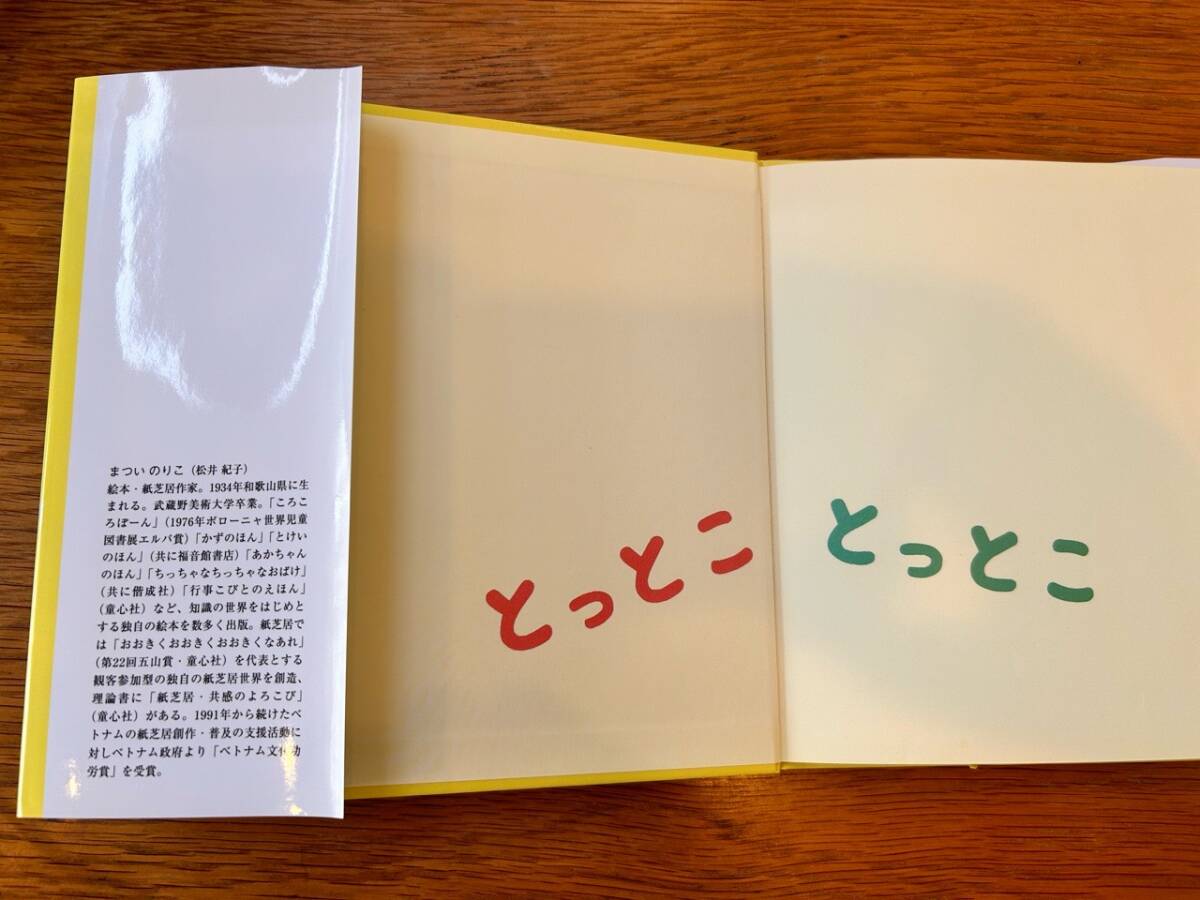 まつい のりこ（松井 紀子）
絵本・紙芝居作家。1934年和歌山県に生
まれる。武蔵野美術大学卒業。「ころこ
ろぽーん」（1976年ボローニャ世界児童
図書展エルバ賞）「かずのほん」「とけい
のほん」（共に福音館書店）「あかちゃん
のほん」「ちっちゃなちっちゃなおばけ」
（共に偕成社）「行事こびとのえほん」
（童心社）など、知識の世界をはじめと
する独自の絵本を数多く出版。紙芝居で
は「おおきくおおきくおおきくなあれ」
（第22回五山賞・童心社）を代表とする
観客参加型の独自の紙芝居世界を創造、
理論書に「紙芝居・共感のよろこび」
（童心社）がある。1991年から続けたベ
トナムの紙芝居創作・普及の支援活動に
対しベトナム政府より「ベトナム文化功
労賞」を受賞。
とっとこ
とっとこ